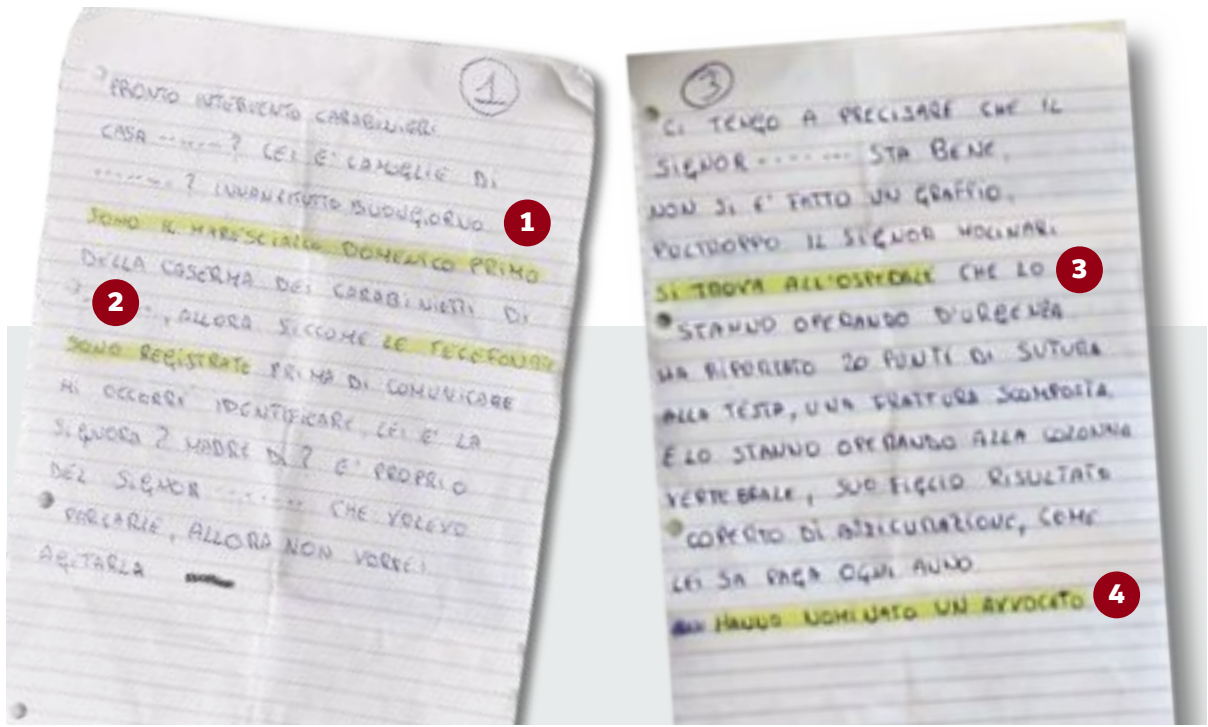 1
PRONTO INTERVENTO CARABINIERI
CASA ......? LEI E' LA MOGLIE DI
.......? INNANZITUTTO BUONGIORNO
1
SONO IL MARESCIALLO DOMENICO PRIMO
DELLA CASERMA DEI CARABINIERI DI
2
..., ALLORA SICCOME LE TELEFONATE
SONO REGISTRATE PRIMA DI COMUNICARE
MI OCCORRE IDENTIFICARE, LEI E' LA
SIGNORA ? MADRE DI ? E' PROPRIO
DEL SIGNOR ........ CHE VOLEVO
PARLARLE, ALLORA NON VORREI
AGITARLA
3
CI TENGO A PRECISARE CHE IL
SIGNOR ........ STA BENE,
NON SI E' FATTO UN GRAFFIO,
PULTROPPO IL SIGNOR MOLINARI
SI TROVA ALL'OSPEDALE CHE LO
3
STANNO OPERANDO D'URGENZA
HA RIPORTATO 20 PUNTI DI SUTURA
ALLA TESTA, UNA FRATTURA SCOMPOSTA
E LO STANNO OPERANDO ALLA COLONNA
VERTEBRALE, SUO FIGLIO RISULTATO
COPERTO DI ASSICURAZIONE, COME
LEI SA PAGA OGNI ANNO
HANNO NOMINATO UN AVVOCATO
4